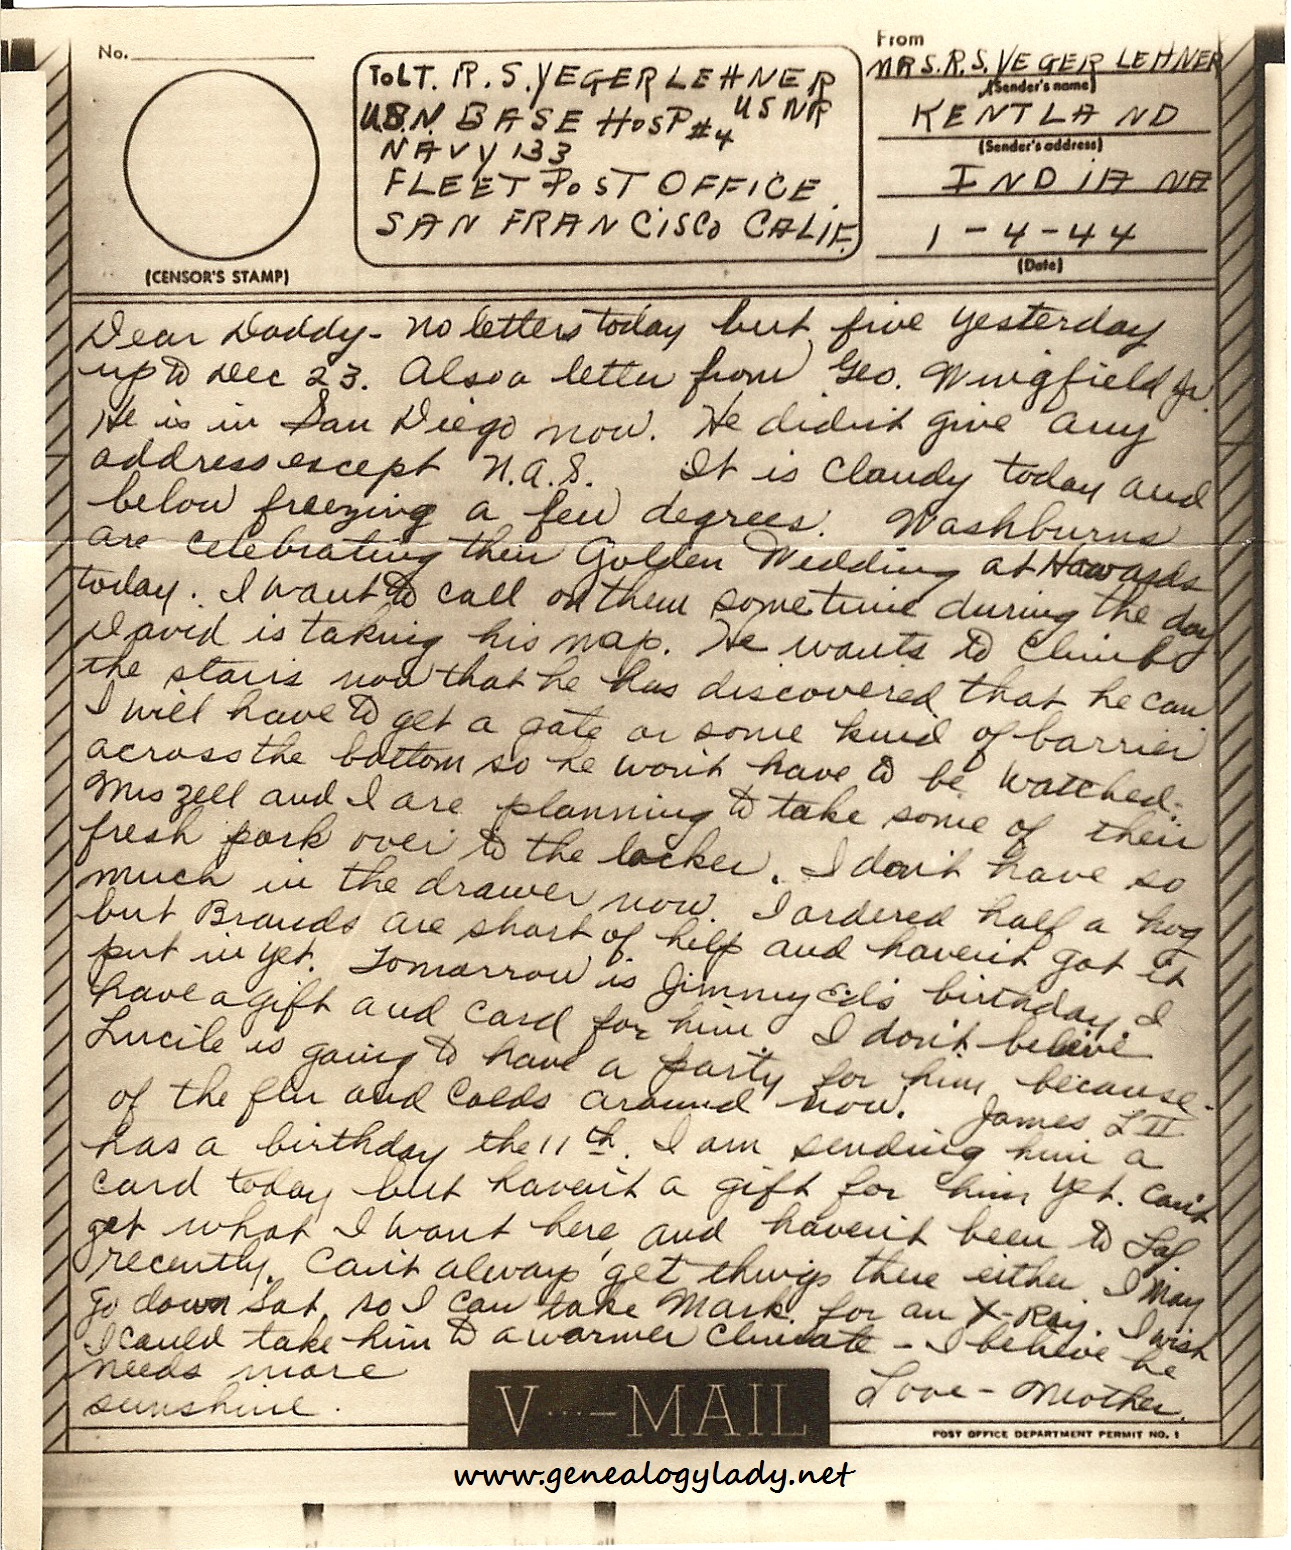 No.
(CENSOR'S STAMP)
To LT. R. S. YEGERLEHNER
U.S.N. BASE HOSP #4 USNR
NAVY 133
FLEET POST OFFICE
SAN FRANCISCO CALIF.
From
MRS. R. S. YEGERLEHNER
(Sender's name)
KENTLAND
(Sender's address)
INDIANA
1-4-44
(Date)
Dear Daddy - No letters today but five yesterday
up to Dec 23. Also a letter from Geo. Wingfield Jr.
He is in San Diego now. He didn't give any
address except N.A.S. It is cloudy today and
below freezing a few degrees. Washburns
are celebrating their Golden Wedding at Howards
today. I want to call on them sometime during the day
David is taking his nap. He wants to climb
the stairs now that he has discovered that he can
I will have to get a gate or some kind of barrier
across the bottom so he won't have to be watched.
Mrs Zell and I are planning to take some of their
fresh pork over to the locker. I don't have so
much in the drawer now. I ordered half a hog
but Brands are short of help and haven't got it
put in yet. Tomorrow is Jimmy Ed's birthday. I
have a gift and card for him. I don't believe
Lucile is going to have a party for him because
of the flu and colds around now. James L II
has a birthday the 11th. I am sending him a
card today but haven't a gift for him yet. Can't
get what I want here, and haven't been to Laf
recently. Can't always get things there either. I may
go down Sat. so I can take Mark for an X-Ray. I wish
I could take him to a warmer climate - I believe he
needs more
sunshine.
Love - Mother.
V···—MAIL
POST OFFICE DEPARTMENT PERMIT NO. 1
www.genealogylady.net